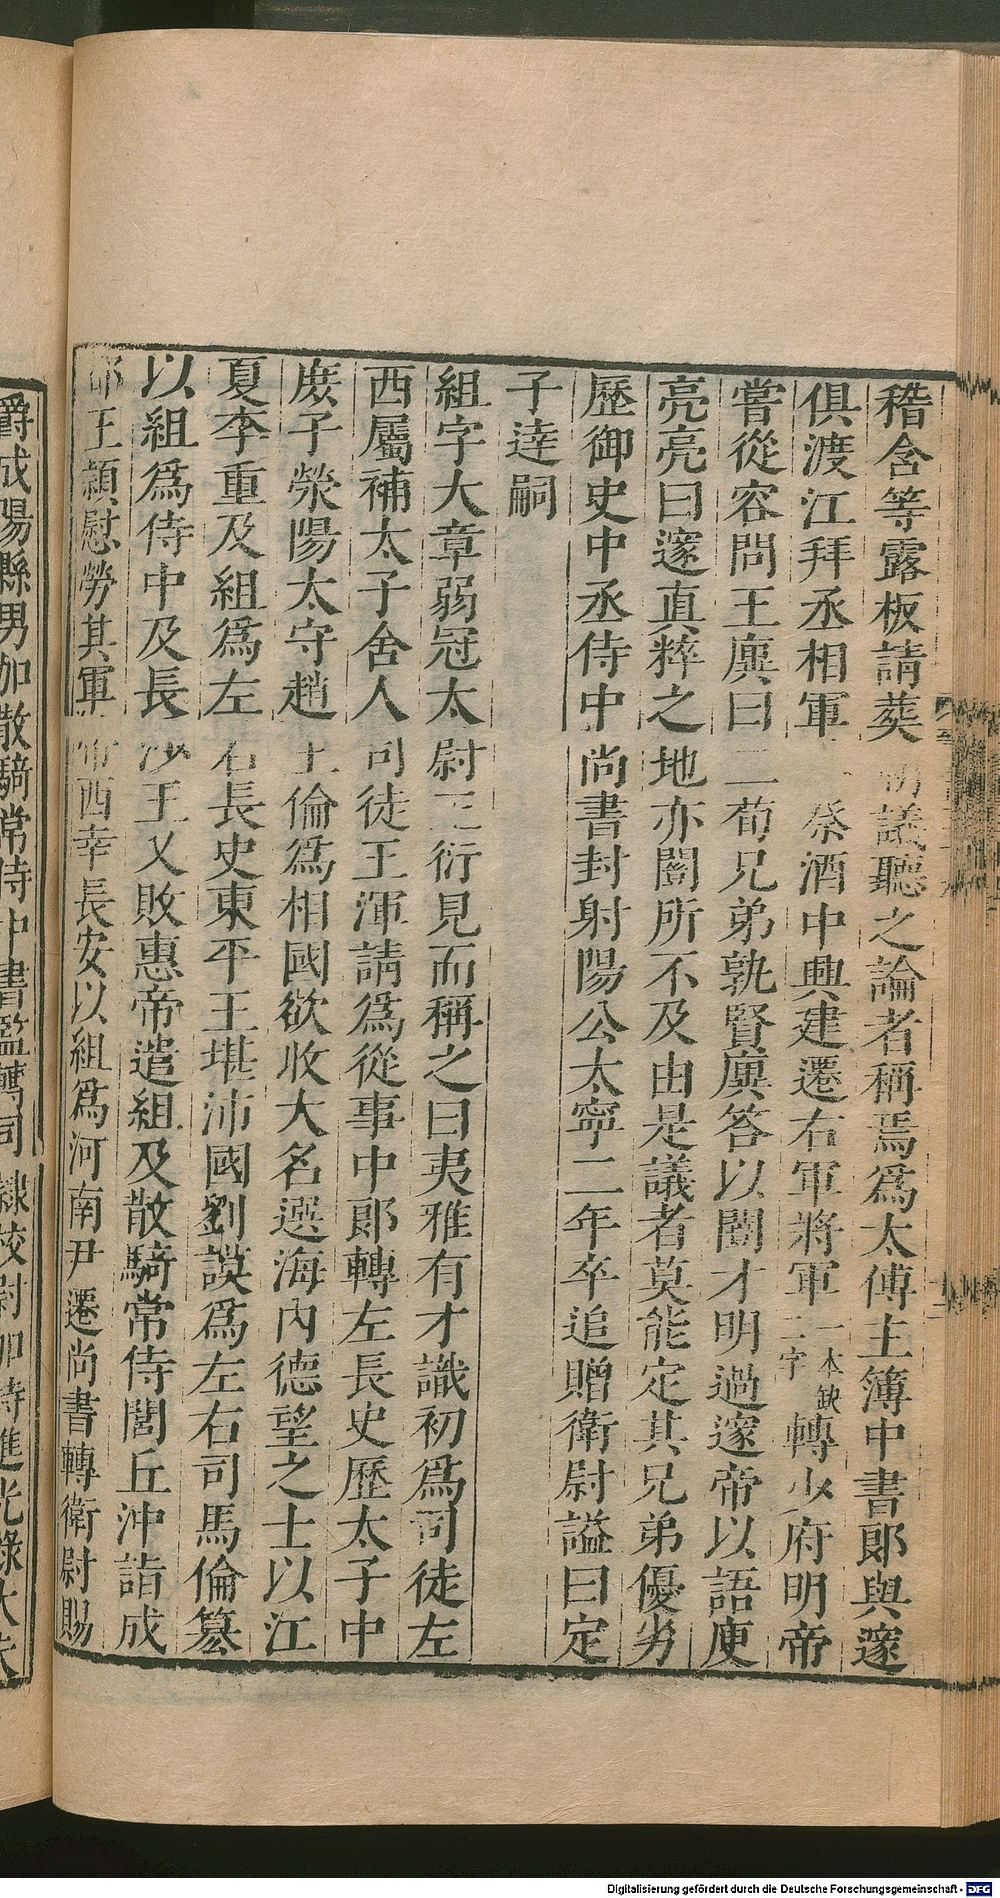 稽含等露板請葬朝議聽之論者稱焉爲太傅主簿中書郎與邃
俱渡江拜丞相軍祭酒中興建遷右軍將軍一本缺二字轉少府明帝
嘗從容問王廙曰二荀兄弟孰賢廙答以闓才明過邃帝以語庾
亮亮曰邃眞粹之地亦闓所不及由是議者莫能定其兄弟優劣
歷御史中丞侍中尚書封射陽公太寧二年卒追贈衛尉謚曰定
子逹嗣
組字大章弱冠太尉王衍見而稱之曰夷雅有才識初爲司徒左
西屬補太子舍人司徒王渾請爲從事中郎轉左長史歷太子中
庶子滎陽太守趙王倫爲相國欲收大名選海內德望之士以江
夏李重及組爲左右長史東平王堪沛國劉謨爲左右司馬倫篡
以組爲侍中及長沙王乂敗惠帝遣組及散騎常侍閭丘沖詣成
都王穎慰勞其軍帝西幸長安以組爲河南尹遷尚書轉衛尉賜
爵成陽縣男加散騎常侍中書監轉司隸校尉加特進光祿大夫
Digitalisierung gefördert durch die Deutsche Forschungsgemeinschaft - DFG